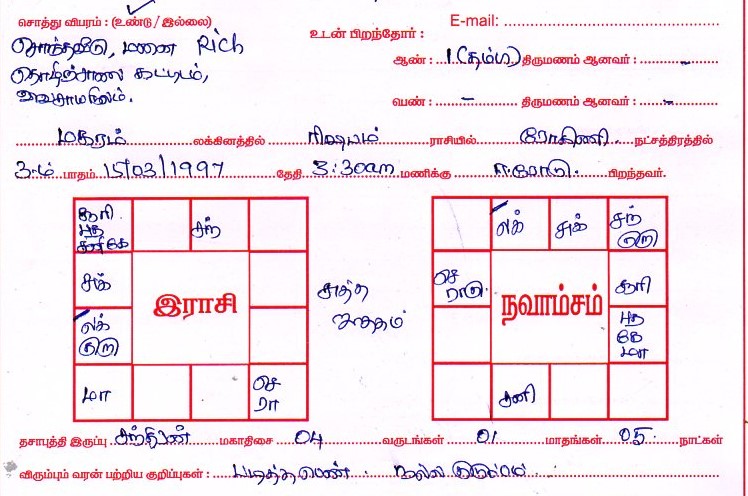 சொத்து விபரம் : (உண்டு / இல்லை)
சொந்தவீடு, மனை Rich
கட்டிடம்,
E-mail:
உடன் பிறந்தோர் :
ஆண் : 1 (தம்பி) திருமணம் ஆனவர் : -
பெண் : - திருமணம் ஆனவர் : -
மகரம் லக்கினத்தில் ரிஷபம் ராசியில் ரோகிணி நட்சத்திரத்தில்
3-ம் பாதம் 15/03/1997 தேதி 3:30am மணிக்கு ஈரோடு பிறந்தவர்.
சூரி புத சனி கே
சந்
சுக்
லக் குரு
மா
செ ரா
இராசி
சுத்த
லக்
சுக்
சந் குரு
செ ராகு
சூரி
புத கே மா
சனி
நவாம்சம்
தசாபுத்தி இருப்பு சந்திரன் மகாதிசை 04 வருடங்கள் 01 மாதங்கள் 05 நாட்கள்
விரும்பும் வரன் பற்றிய குறிப்புகள் : படித்த பெண் நல்ல குடும்பம்